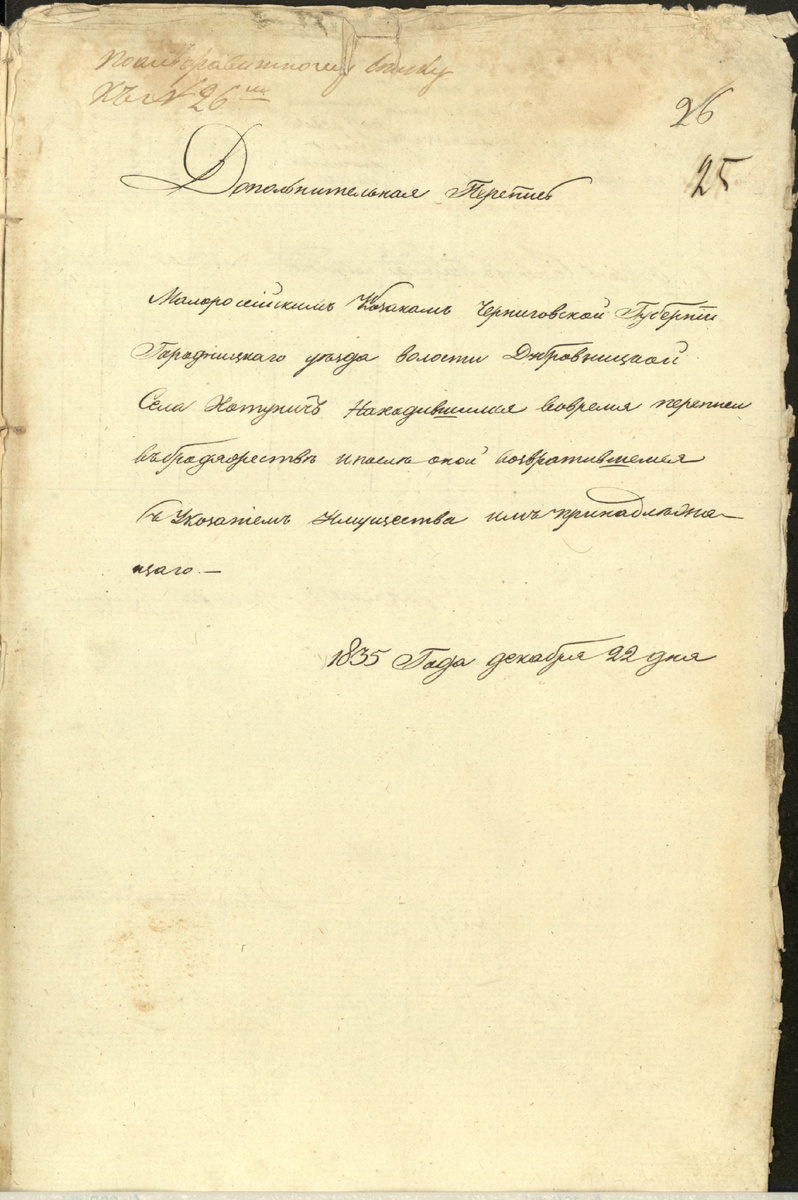 По алфавитному списку
Къ № 26му
26
25
Дополнительная Перепись
Малоросiйскимъ Козакамъ Черниговской Губернiи
Городницкаго уезда волости Дибровницкой
Села Хотуничъ Находившимся вовремя переписи
въ бродяжествѣ и послѣ оной возвратившемся
съ Указанiемъ Имущества имъ принадлѣжа—
щаго.—
1835 Года декабря 22 дня